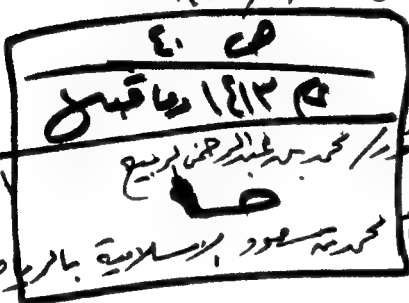 ص ٤٠
م ١٤١٣ وما قبل
ور/ محمد بن عبدالرحمن الربيع
محمد بن سعود الإسلامية بالرياض